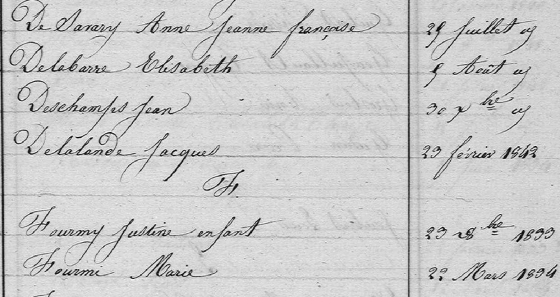 De Savary Anne Jeanne françoise 29 Juillet
Delabarre Elisabeth 9 Août
Deschamps Jean 30 X bre
Delalande Jacques 23 février 1842
F.
Fourmy Justine enfant 23 8 bre 1833
Fourmi Marie 22 Mars 1834